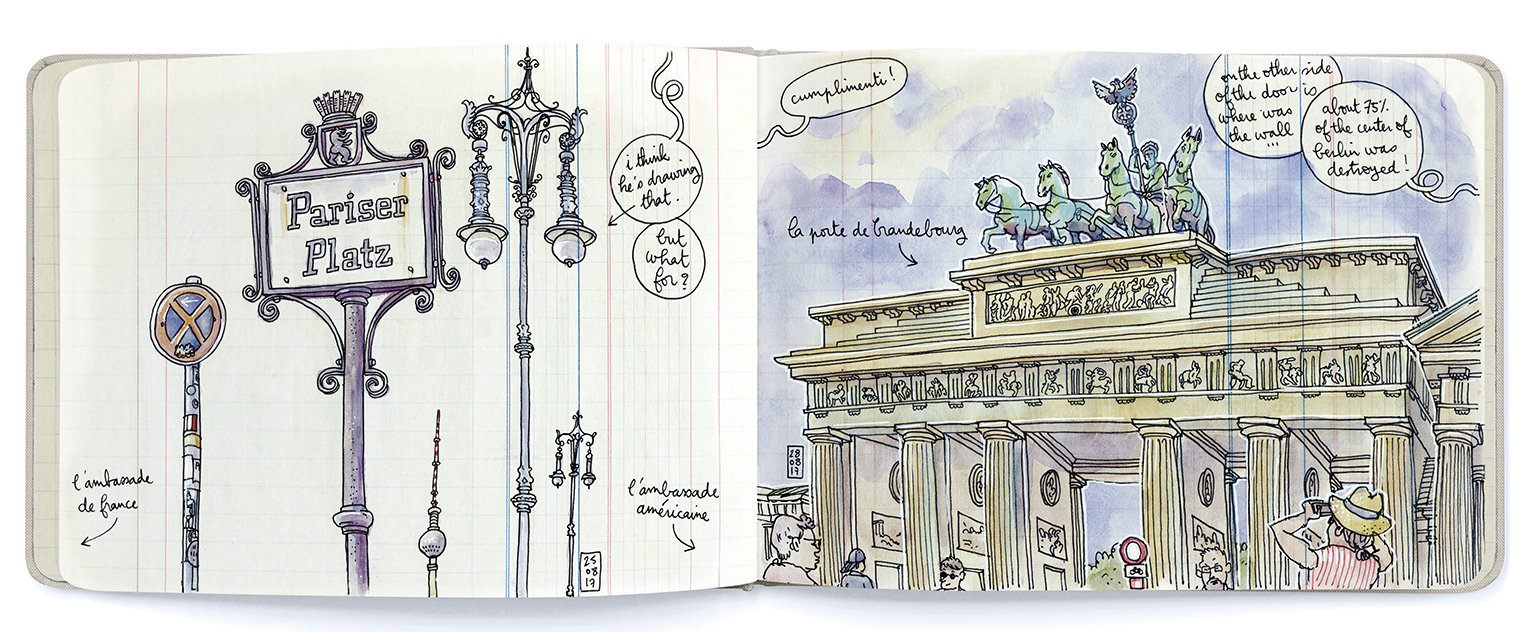 Pariser
Platz
i think
he's drawing
that.
but
what
for?
l'ambassade
de france
l'ambassade
américaine
25
08
17
cumplimenti!
la porte de brandebourg
on the other side
of the door is
where was
the wall
...
about 75%
of the center of
berlin was
destroyed!
28
08
17